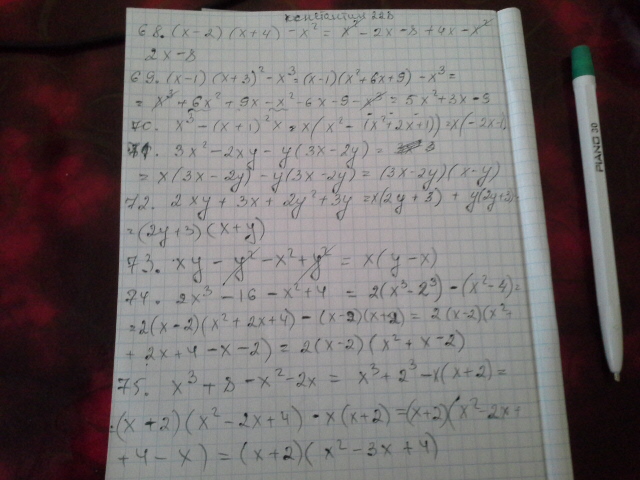 68. (x-2)(x+4) - x² = x² - 2x - 8 + 4x - x²
2x - 8
69. (x-1)(x+3)² - x³ = (x-1)(x²+6x+9) - x³ =
= x³ + 6x² + 9x - x² - 6x - 9 - x³ = 5x² + 3x - 9
70. x³ - (x+1)²x = x(x² - (x²+2x+1)) = x(-2x-1)
71. 3x² - 2xy - y(3x-2y) =
= x(3x-2y) - y(3x-2y) = (3x-2y)(x-y)
72. 2xy + 3x + 2y² + 3y = x(2y+3) + y(2y+3) =
= (2y+3)(x+y)
73. xy - y² - x² + y² = x(y-x)
74. 2x³ - 16 - x² + 4 = 2(x³-2³) - (x²-4) =
= 2(x-2)(x²+2x+4) - (x-2)(x+2) = 2(x-2)(x²+
+ 2x + 4 - x - 2) = 2(x-2)(x²+x-2)
75. x³ + 8 - x² - 2x = x³ + 2³ - x(x+2) =
= (x+2)(x²-2x+4) - x(x+2) = (x+2)(x²-2x+
+ 4 - x) = (x+2)(x²-3x+4)
PIANO